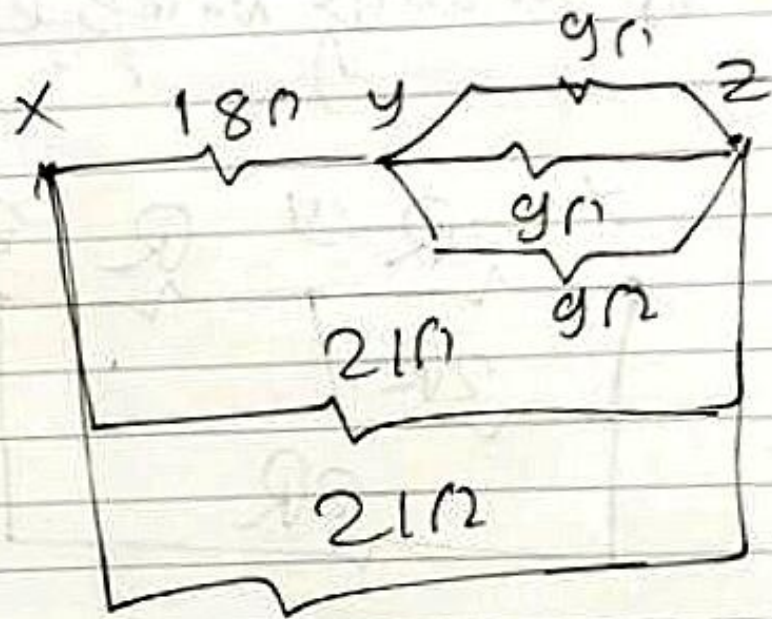 9Ω
X 18Ω y Z
9Ω
9Ω
21Ω
21Ω